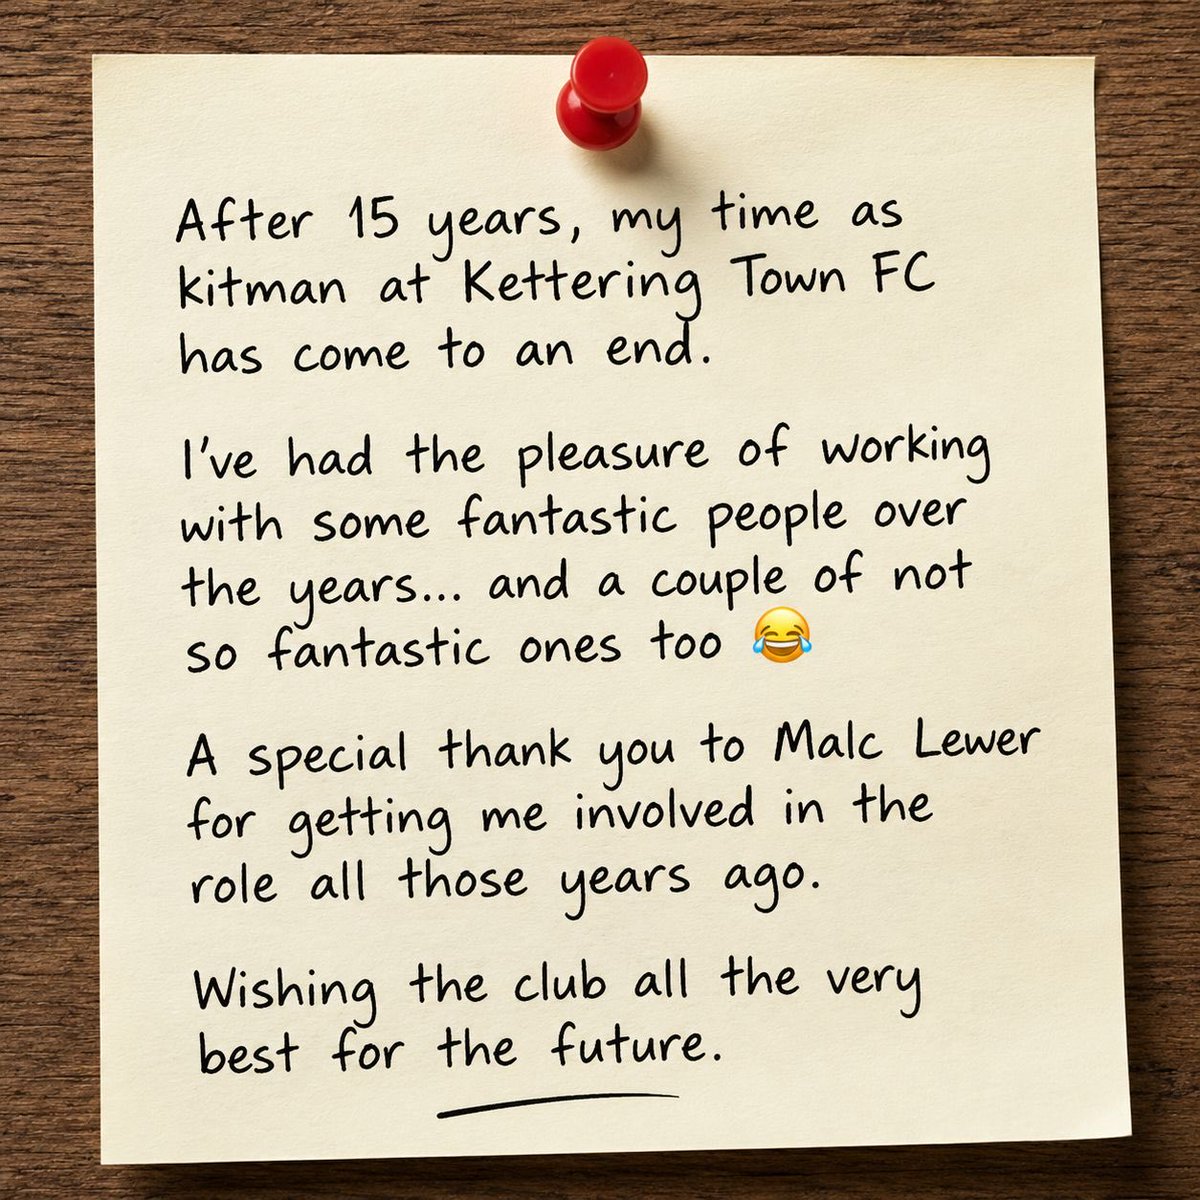 After 15 years, my time as
kitman at Kettering Town FC
has come to an end.
I've had the pleasure of working
with some fantastic people over
the years... and a couple of not
so fantastic ones too 😂
A special thank you to Malc Lewer
for getting me involved in the
role all those years ago.
Wishing the club all the very
best for the future.